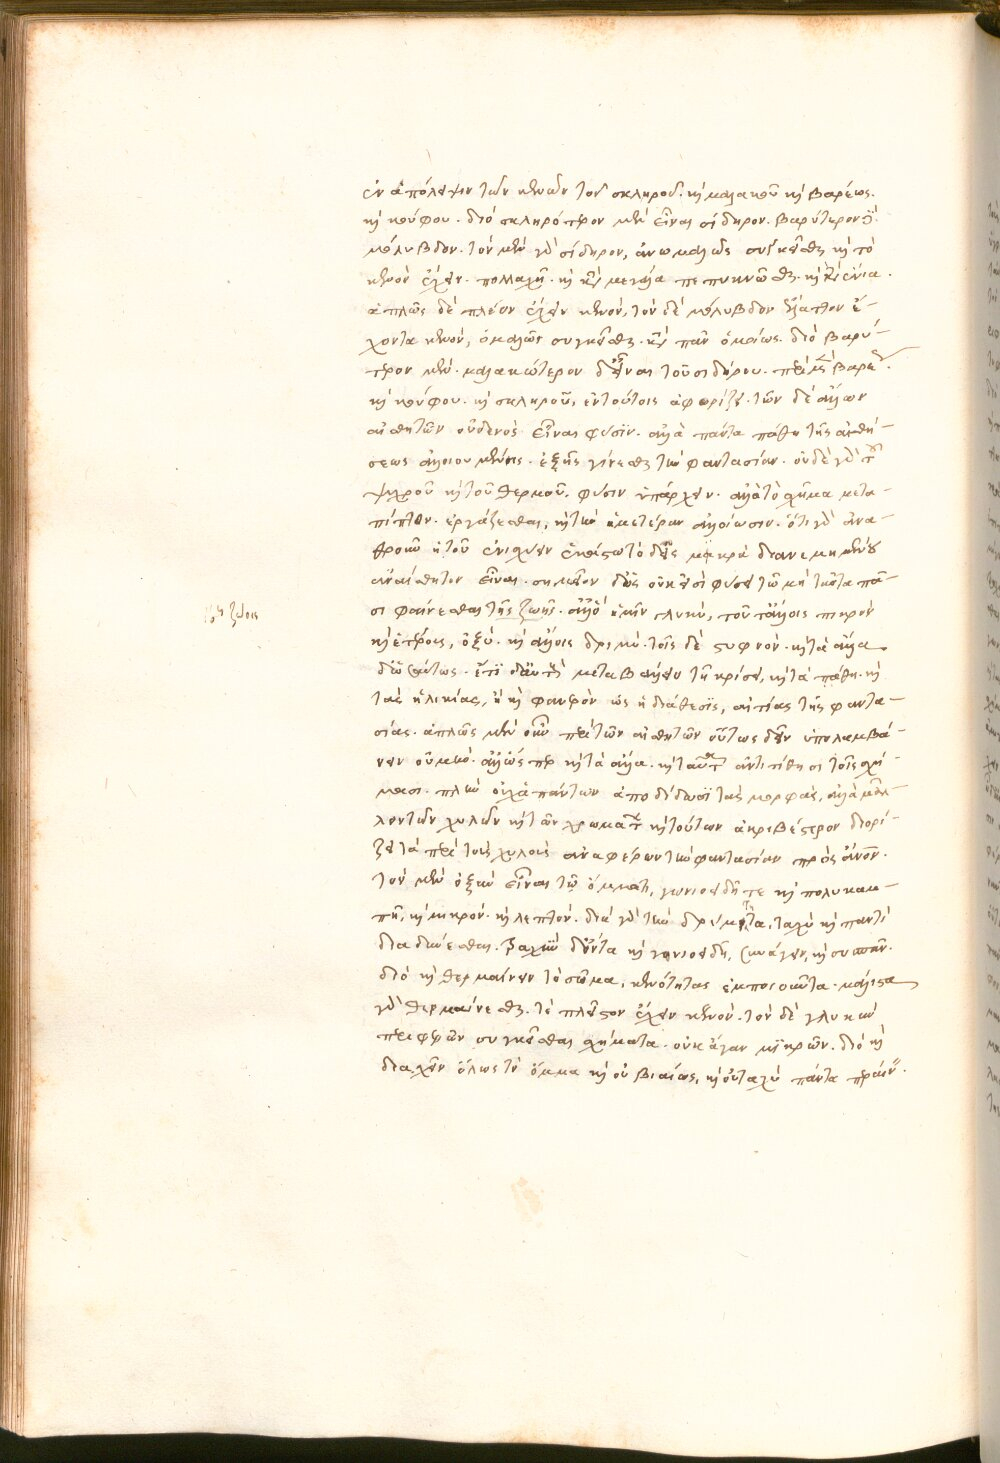 ἐναπόλειψιν τῶν κενῶν τοῦ σκληροῦ. καὶ μαλακοῦ καὶ βαρέως.
καὶ κούφου. διό σκληρότερον μὲν εἶναι σίδηρον. βαρύτερον δὲ
μόλυβδον. τὸν μὲν γὰρ σίδηρον, ἀνωμάλως συγκεῖσθαι καὶ τὸ
κενὸν ἔχειν. πολλαχῆ. καὶ κατὰ μεγάλα πεπυκνῶσθαι. καὶ κατὰ ἔνια.
ἁπλῶς δὲ πλέον ἔχειν κενόν, τὸν δὲ μόλυβδον ἔλαττον ἔ-
χοντα κενόν, ὁμαλῶς συγκεῖσθαι. κατὰ πᾶν ὁμοίως. διὸ βαρύ-
τερον μὲν. μαλακώτερον δ' εἶναι τοῦ σιδήρου. περὶ μὲν βαρέως
καὶ κούφου. καὶ σκληροῦ, ἐν τούτοις ἀφορίζει. τῶν δὲ ἄλλων
αἰσθητῶν οὐδενὸς εἶναι φύσιν. ἀλλὰ πάντα πάθη τῆς αἰσθή-
σεως ἀλλοιουμένης. ἐξῆς γίνεσθαι τὴν φαντασίαν. οὐδὲ γὰρ τοῦ
ψυχροῦ καὶ τοῦ θερμοῦ. φύσιν ὑπάρχειν. ἀλλὰ τὸ σχῆμα μετα-
πίπτον. ἐργάζεσθαι, καὶ τὴν ἡμετέραν ἀλλοίωσιν. ὅτι γὰρ ἀνα-
θροῦν ἢ τοῦ ἐνισχύειν ἑκάστω τὸ δ' εἰς μϊκρὰ διανεμημένον
ἀναίσθητον εἶναι. σημεῖον δ' ὡς οὐκ εἰσὶ φύσει τῶ μὴ ταῦτα πᾶ-
σι φαίνεσθαι τῆς ζωῆς. ἀλλ' ὃ ἡμῖν γλυκύ, τοῦτ' ἄλλοις πικρὸν
καὶ ἑτέροις, ὀξύ. καὶ ἄλλοις δριμύ. τοῖς δὲ στυφνόν. καὶ τὰ ἄλλα
δ' ὡσαύτως. ἔτϊ δ' αὐτοὺς μεταβάλλειν τῆ κρίσει, καὶ τὰ πάθη. καὶ
τὰς ἡλικίας, ἢ καὶ φανερὸν ὡς ἡ διάθεσϊς, αἰτίας τῆς φαντα-
σίας. ἁπλῶς μὲν οὖν περὶ τῶν αἰσθητῶν οὕτως δεῖν ὑπολαμβά-
νειν οὐ μὴν. ἀλλ' ὥσπερ καὶ τὰ ἄλλα. καὶ ταῦτα ἀντιτίθησι τοῖς σχή-
μασι. πλὴν οὐχ ἁπάντων ἀποδίδωσϊ τὰς μορφάς, ἀλλὰ μᾶλ-
λον τῶν χυλῶν καὶ τῶν χρωμάτων καὶ τούτων ἀκριβέστερον διορί-
ζει τὰ περὶ τοὺς χυλοὺς ἀναφέρων τὴν φαντασίαν πρὸς ἄνθρωπον.
τὸν μὲν ὀξὺν εἶναι τῶ ὄμματι, γωνιοειδῆ τε καὶ πολυκαμ-
πῆ, καὶ μικρόν. καὶ λεπτόν. διὰ γὰρ τὴν δριμύτητα, ταχὺ καὶ παντὶ
διαδύεσθαι. τραχὺν δ' ὄντα καὶ γωνιοειδῆ, συνάγειν, καὶ συσπᾶν.
διὸ καὶ θερμαίνειν τὸ σῶμα, κενότητας ἐμποιοῦντα. μάλιστα
γὰρ θερμαίνεσθαι. τὸ πλεῖστον ἔχειν κενόν. τὸν δὲ γλυκὺν
περιφερῶν συγκεῖσθαι σχήματα. οὐκ ἄγαν μϊκρῶν. διὸ καὶ
διαχεῖν ὅλως τὸ ὄμμα καὶ οὐ βιαίως, καὶ οὐ ταχὺ πάντα περαίνειν.